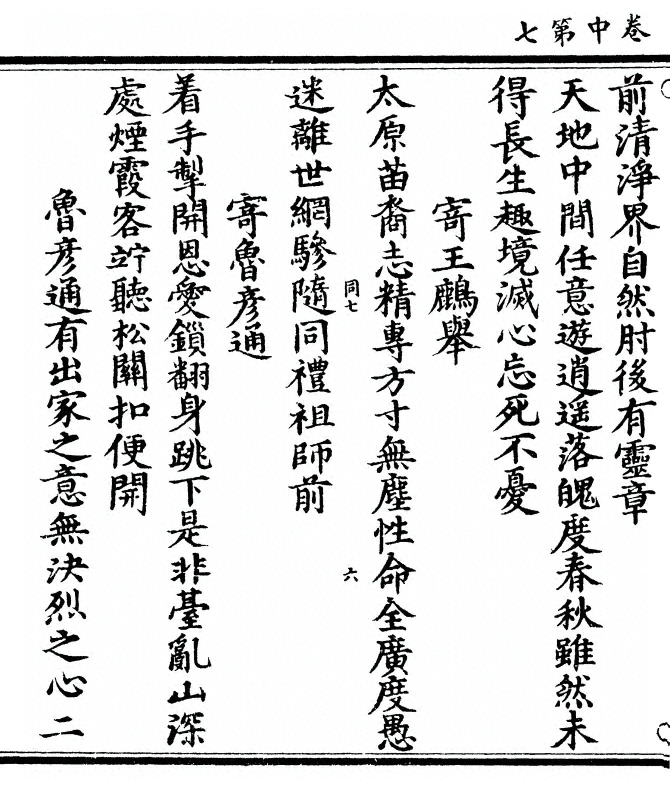 卷中第七
前清淨界自然肘後有靈章
天地中間任意遊逍遥落魄度春秋雖然未
得長生趣境滅心忘死不憂
寄王鵰舉
太原苗裔志精專方寸無塵性命全廣度愚
同七
六
迷離世網驂隨同禮祖師前
寄魯彦通
着手掣開恩愛鎖翻身跳下是非臺亂山深
處煙霞客竚聽松關扣便開
魯彦通有出家之意無決烈之心二